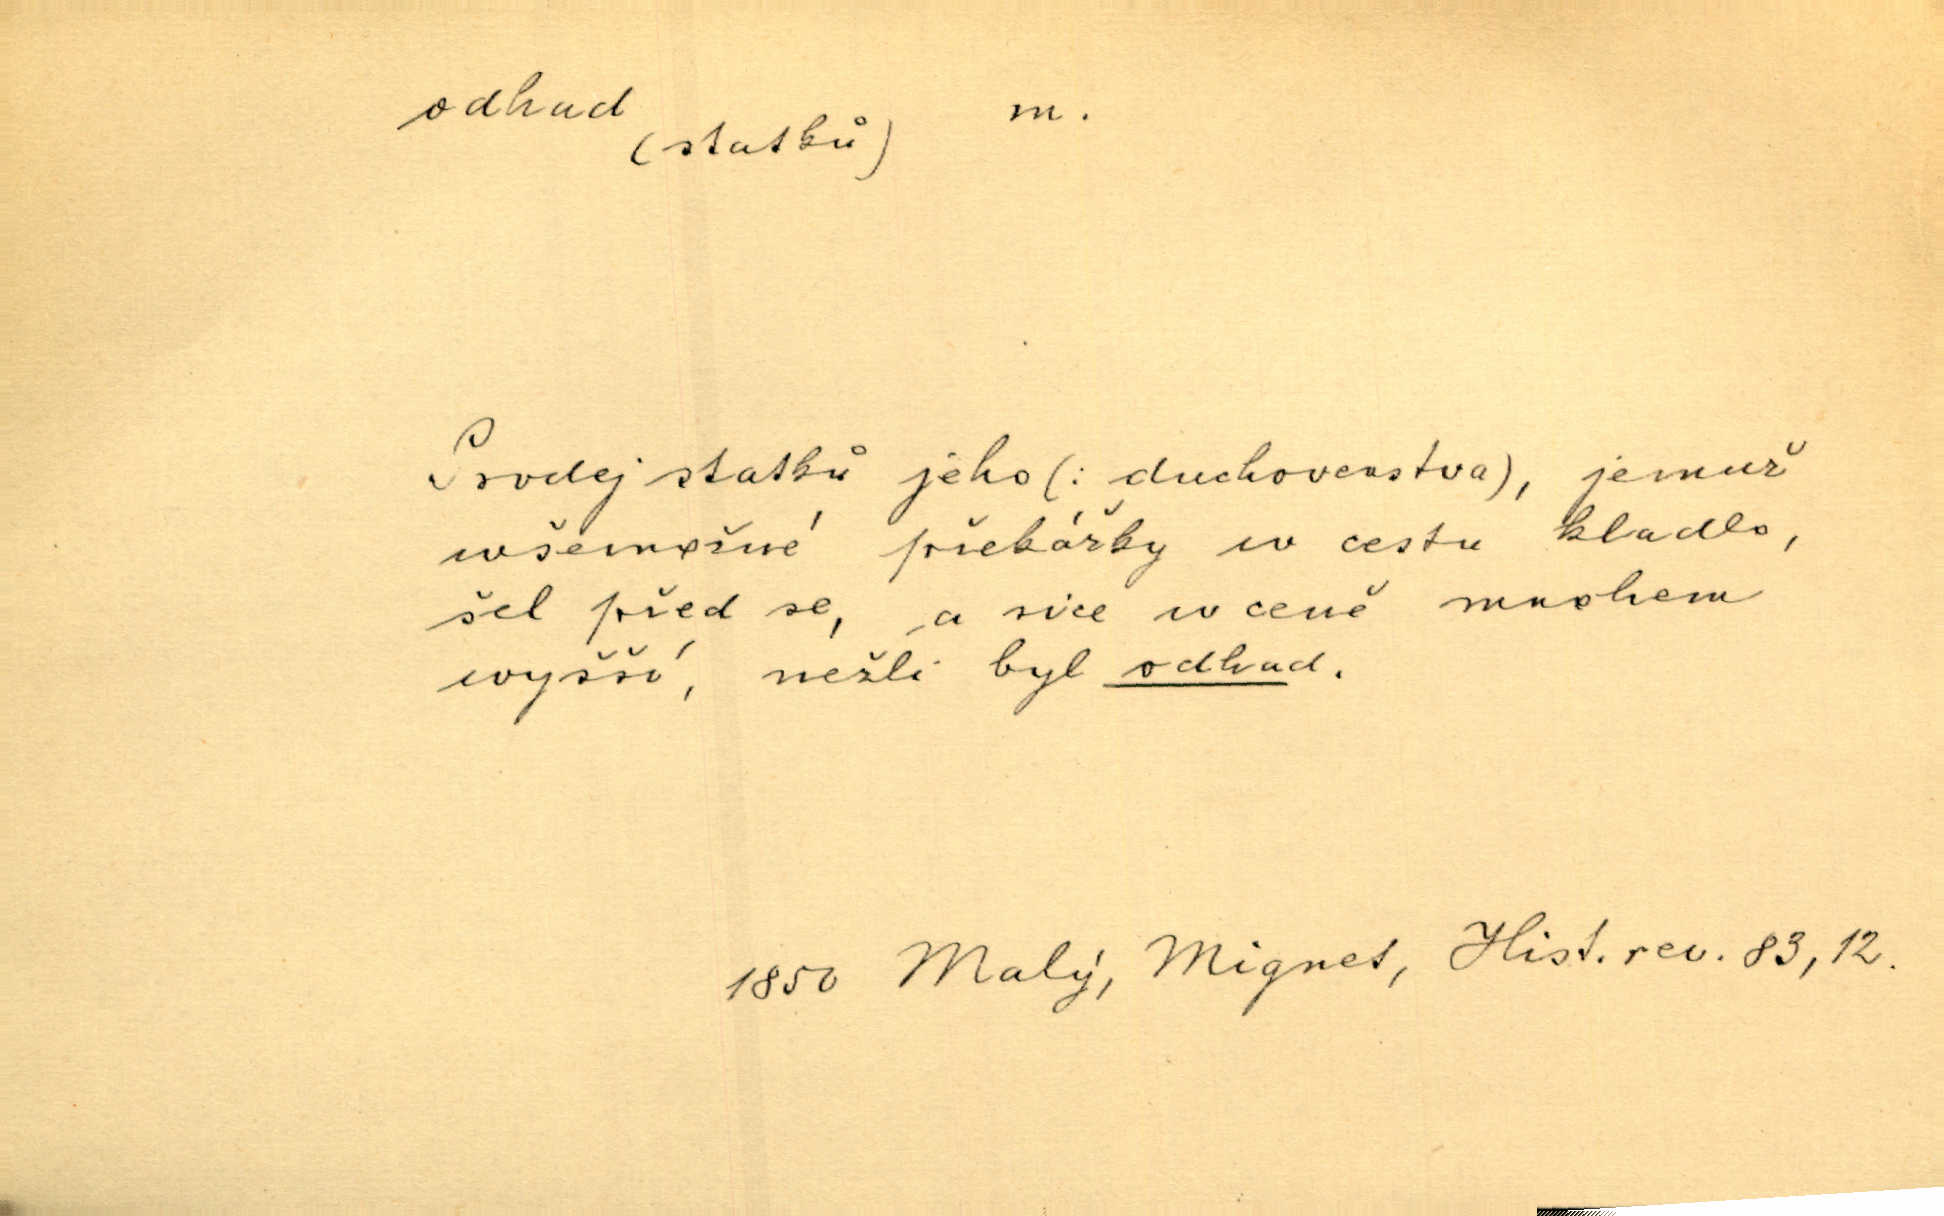 odhad m.
(statků)
Prodej statků jeho (: duchovenstva), jemuž
wšemožné překážky w cestu kladlo,
šel před se, a sice w ceně mnohem
wyšší, nežli byl odhad.
1850 Malý, Mignet, Hist. rev. 83, 12.